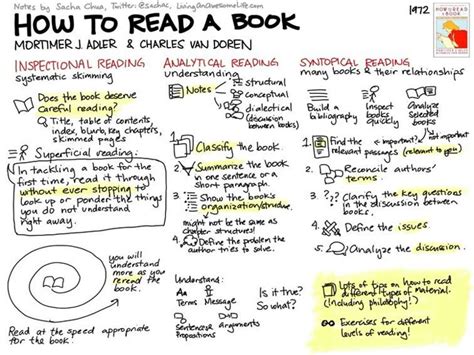 Notes by Sacha Chua, Twitter: @sachac, LivingAnAwesomeLife.com
HOW TO READ A BOOK
MORTIMER J. ADLER & CHARLES VAN DOREN
1972
HOW TO READ
A BOOK
INSPECTIONAL READING
systematic skimming
Does the book deserve
careful reading?
Title, table of contents,
index, blurb, key chapters,
skimmed pages
Superficial reading:
In tackling a book for the
first time, read it through
without ever stopping to
look up or ponder the things
you do not understand
right away.
you will
understand
more as you
reread the
book.
Read at the speed appropriate
for the book.
ANALYTICAL READING
understanding
Notes
structural
conceptual
dialectical
(discussion
between books)
1. Classify the book.
2. Summarize the book
in one sentence or a
short paragraph.
3. Show the book's
organization/structure.
might not be the same as
chapter structures!
4. Define the problem the
author tries to solve.
Understand:
Aa
Terms
Message
Sentences
Propositions
arguments
Is it true?
So what?
SYNTOPICAL READING
many books & their relationships
Build a
bibliography
Inspect
books
quickly
Analyze
selected
books
1. Find the important?
relevant passages
not important
(relevant to you!)
2. Reconcile authors'
terms.
3. Clarify the key questions
in the discussion between
books.
4. Define the issues.
5. Analyze the discussion.
Lots of tips on how to read
different types of material.
(Including philosophy!)
Exercises for different
levels of reading!